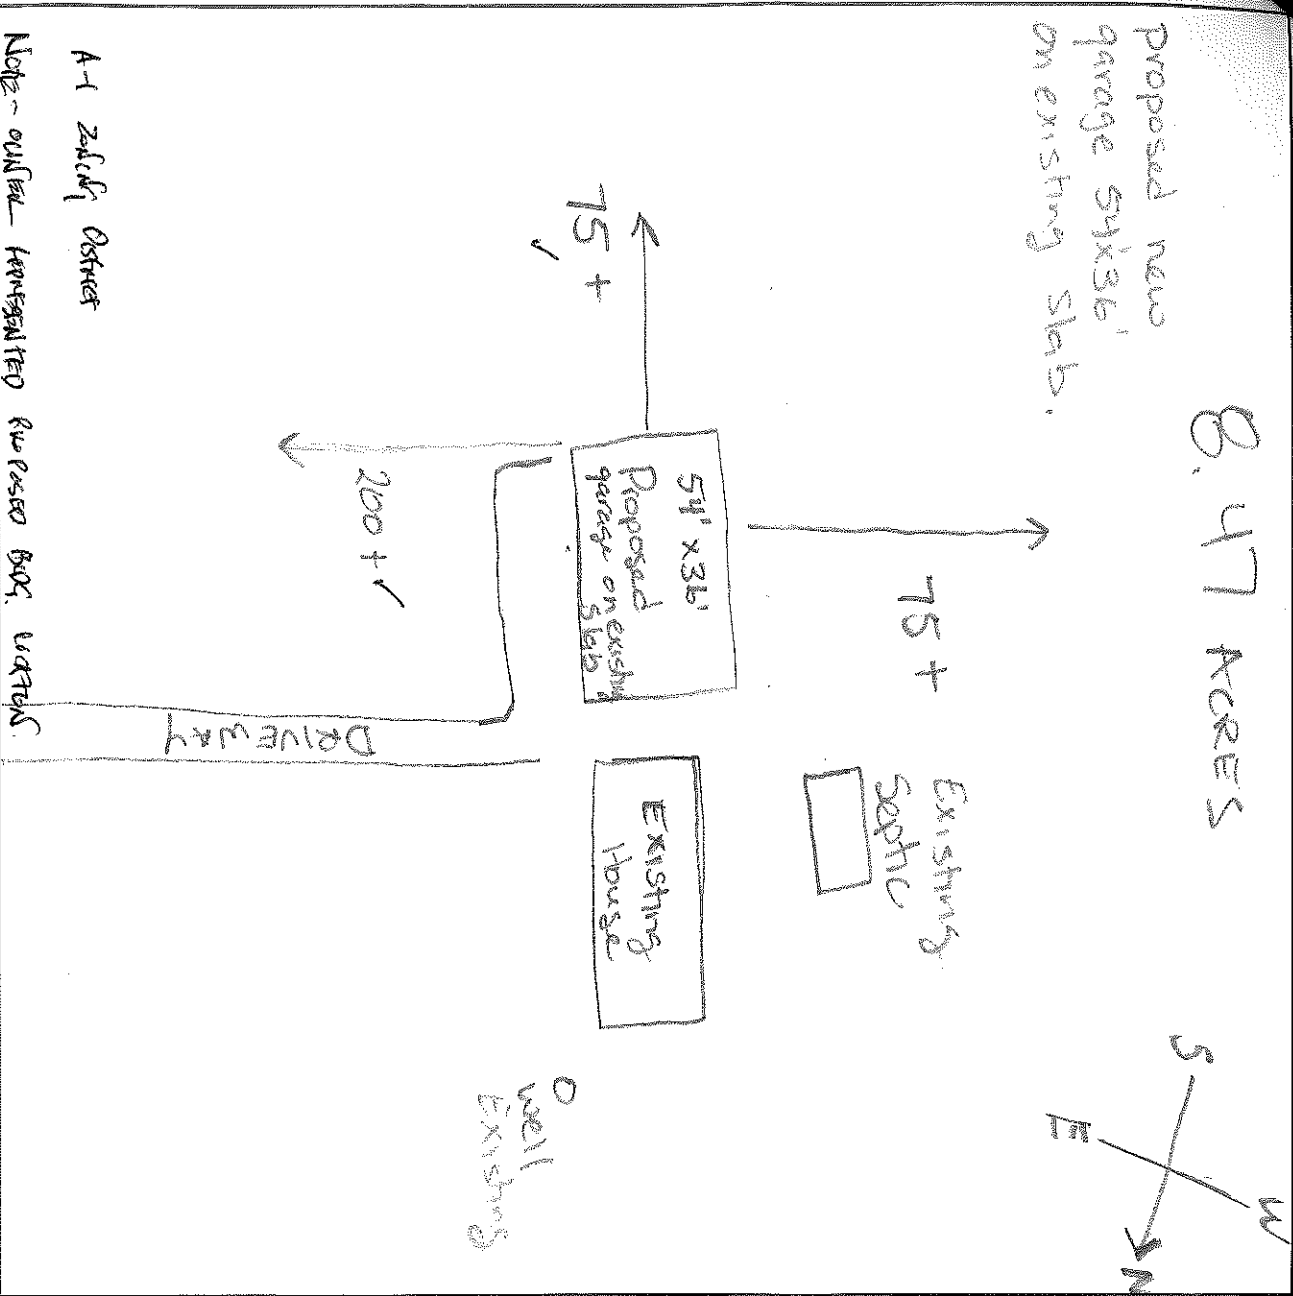 8.47 ACRES
Proposed new
garage 54'x36'
on existing slab.
S
W
E
N
75+
Existing
Septic
75+ ✓
54' x 36'
Proposed
garage on existing
slab
Existing
House
200+ ✓
O
well
Existing
DRIVEWAY
A-1 ZONING DISTRICT
NOTE - OWNER REPRESENTED PROPOSED BLDG. LOCATION.